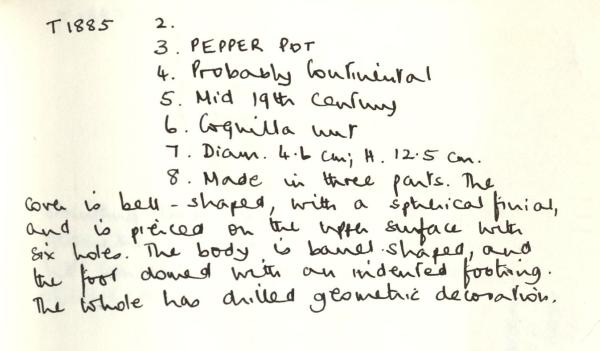 T1885 2.
3. PEPPER POT
4. Probably Continental
5. Mid 19th century
6. Coquilla nut
7. Diam. 4.6 cm; H. 12.5 cm.
8. Made in three parts. The
cover is bell-shaped, with a spherical finial,
and is pierced on the upper surface with
six holes. The body is barrel-shaped, and
the foot domed with an indented footring.
The whole has drilled geometric decoration.